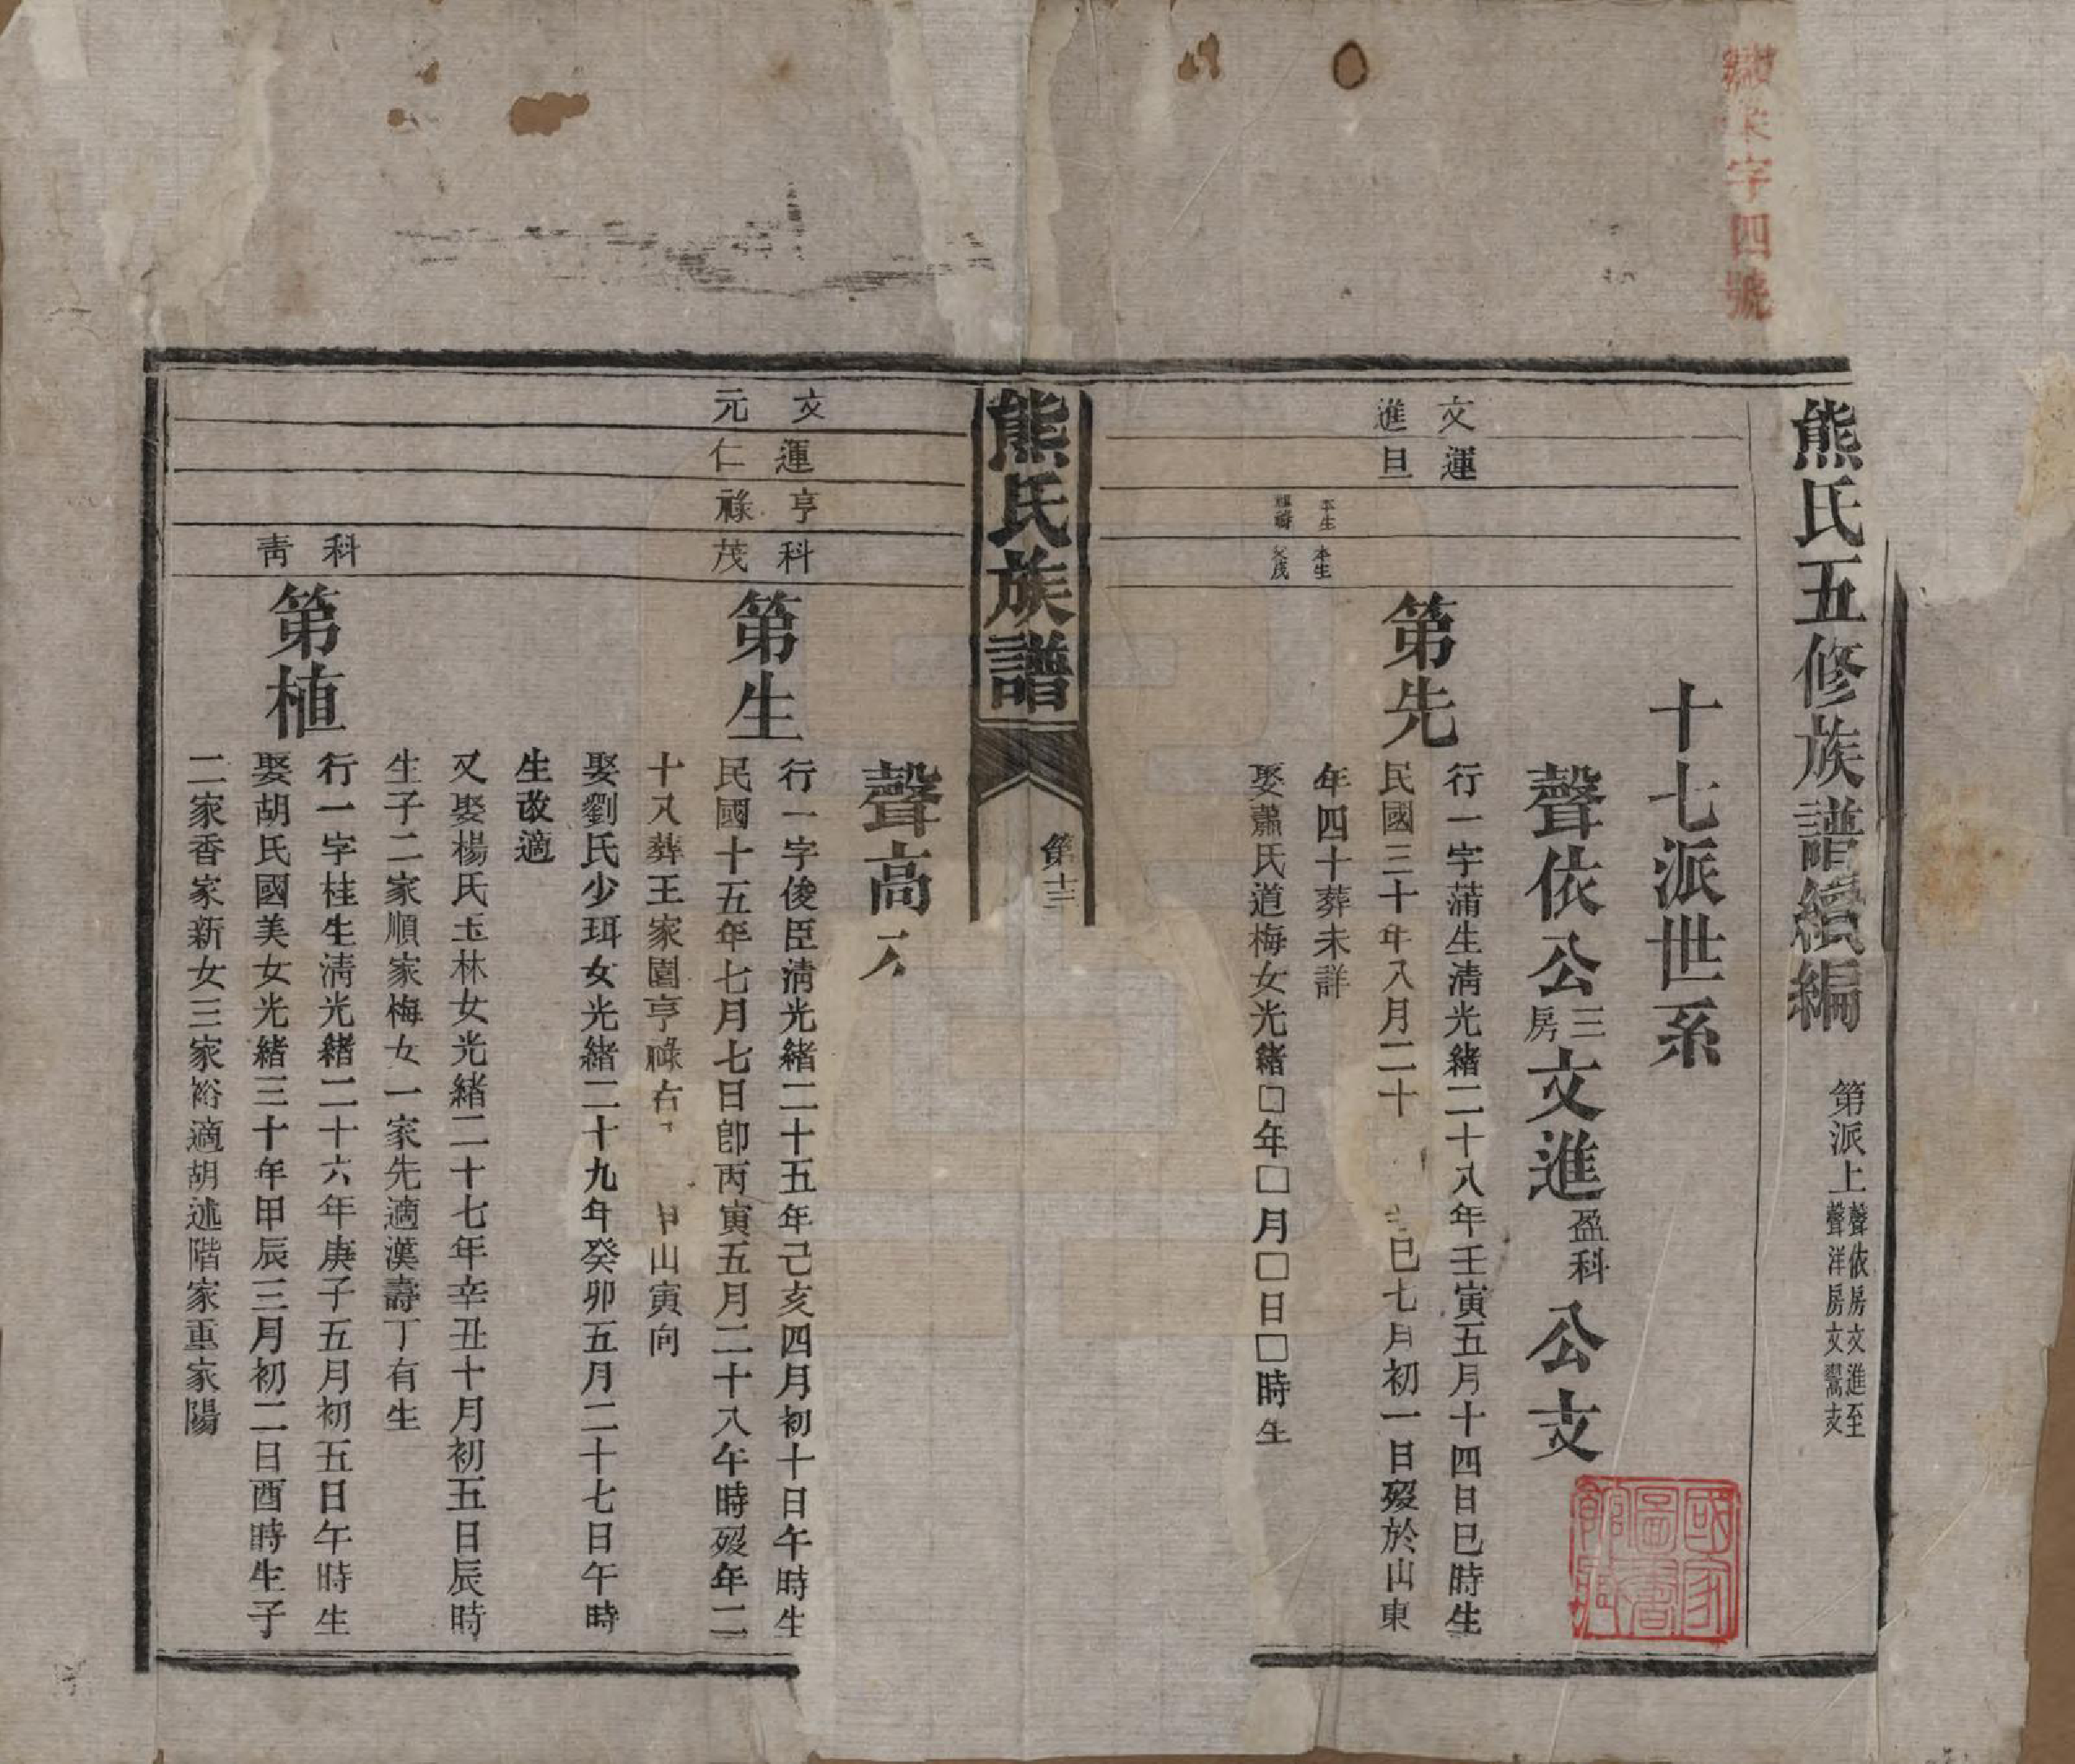 字四號
熊氏五修族譜續編
第派上聲依房文進至
聲洋房文翯支
十七派世系
聲依公三房文進盈科公支
文進
運旦
本生
本生父茂
第先
行一字蒲生淸光緒二十八年壬寅五月十四日巳時生
民國三十年八月二十
巳七月初一日歿於山東
年四十葬未詳
娶蕭氏道梅女光緒□年□月□日□時生
國家圖書館藏
熊氏族譜
第十三
聲高
文元
運仁
亨祿
科茂
第生
行一字俊臣淸光緒二十五年己亥四月初十日午時生
民國十五年七月七日卽丙寅五月二十八午時歿年二
十八葬王家園亨祿右
甲山寅向
娶劉氏少珥女光緒二十九年癸卯五月二十七日午時
生改適
又娶楊氏玉林女光緒二十七年辛丑十月初五日辰時
生子二家順家梅女一家先適漢壽丁有生
科靑
第植
行一字桂生淸光緒二十六年庚子五月初五日午時生
娶胡氏國美女光緒三十年甲辰三月初二日酉時生子
二家香家新女三家裕適胡述階家重家陽